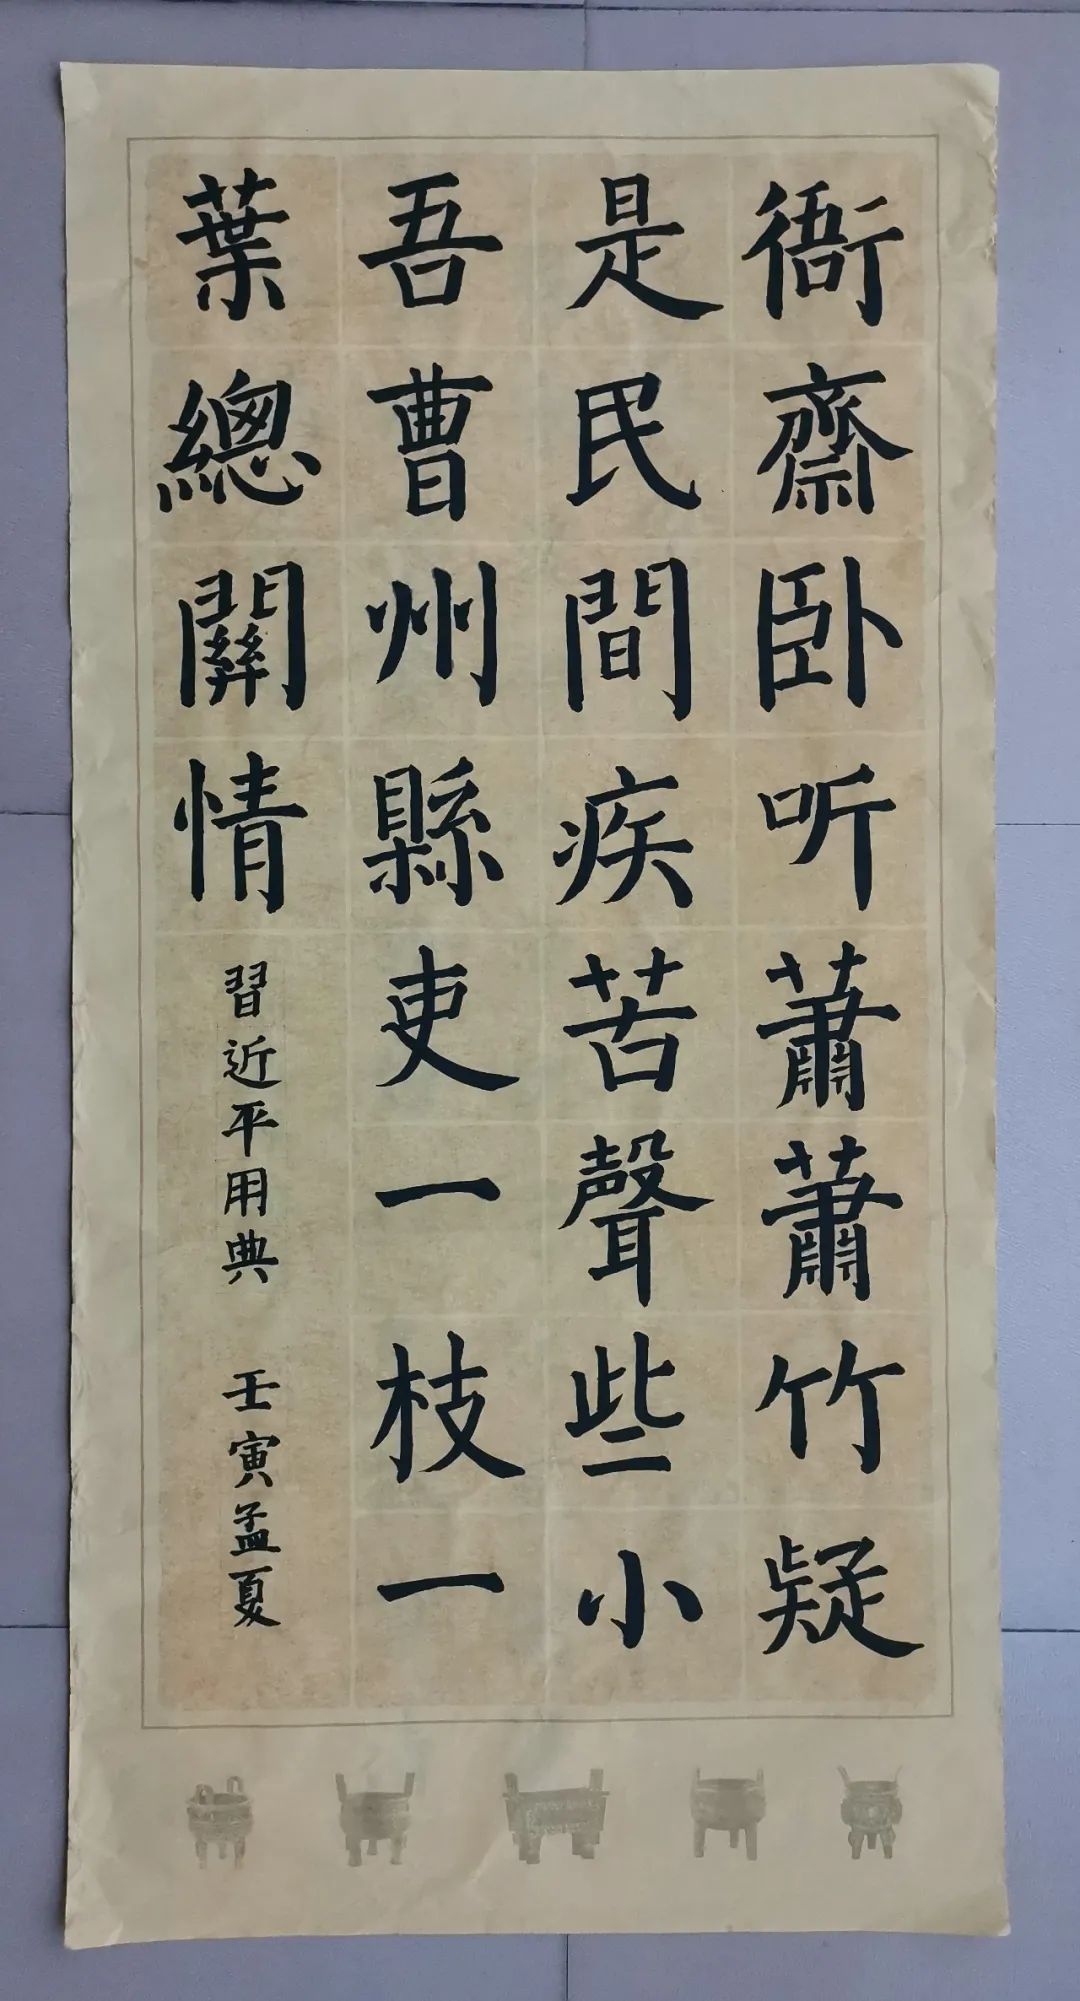 衙齋卧听蕭蕭竹疑
是民間疾苦聲些小
吾曹州縣吏一枝一
葉總關情
習近平用典 壬寅孟夏